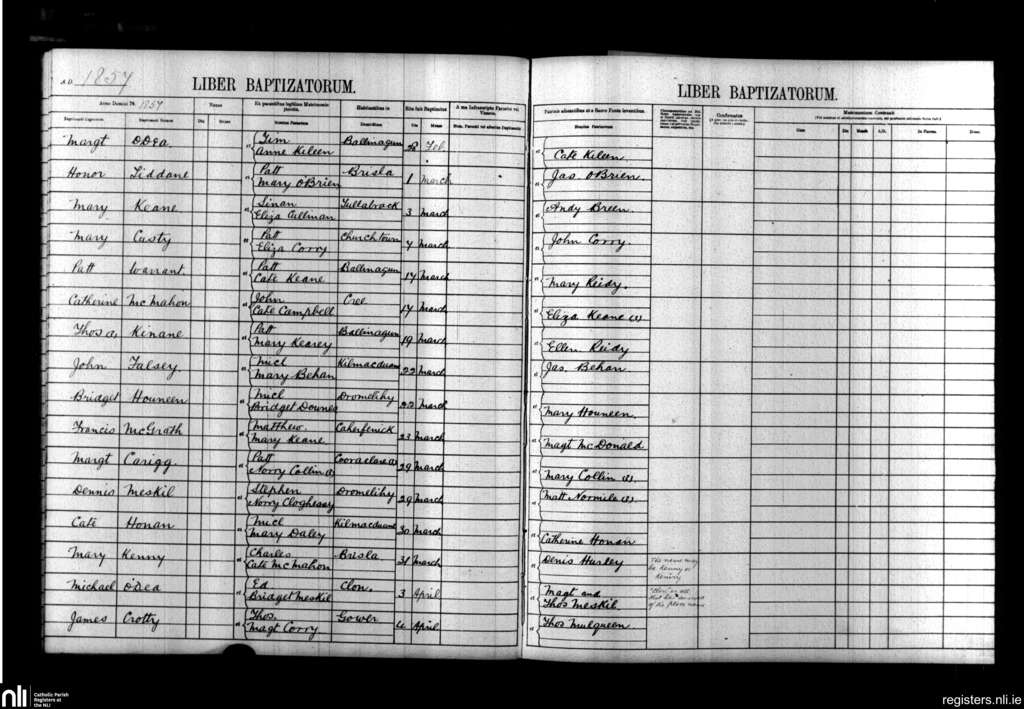 A.D. 1857
LIBER BAPTIZATORUM.
LIBER BAPTIZATORUM.
Anno Domini 1857
Natus
Ex parentibus legitimo Matrimonio junctis.
Habitantibus in
Rite fuit Baptizatus
A me Infrascripto Parocho vel Vicario.
Die Mense
Confirmatus
Matrimonium Contraxit
Die Mense A.D.
Margt O'Dea. Tim Ballinagun 28 Feb
Anne Kileen Cate Kileen
Honor Liddane Patt Brisla 1 March
Mary O'Brien Jas. O'Brien.
Mary Keane Sinan Tullabrack 3 March
Eliza Cullinan Andy Breen.
Mary Casty Patt Churchtown 7 March
Eliza Corry John Corry.
Patt Warrant. Patt Ballinagun 17 March
Cate Keane Mary Reidy.
Catherine McMahon John Cree 17 March
Cate Campbell Eliza Keane (s)
Thos (s) Kinane Patt Ballinagun 19 March
Mary Kearey Ellen Reidy
John Falsey. Micl Kilmacduan 22 March
Mary Behan Jas. Behan.
Bridget Houneen Micl Dromelihy 22 March
Bridget Downes Mary Houneen.
Francis McGrath Matthew. Caherfenick 23 March
Mary Keane Magt McDonald
Margt Carigg. Patt Cooraclare (s) 29 March
Norry Collin (s) Mary Collin (s).
Dennis Meskil Stephen Dromelihy 29 March
Norry Cloghessy Matt Normile (s)
Cate Honan Micl Kilmacduane 30 March
Mary Daley Catherine Honan
Mary Kenny Charles Brisla 31 March
Cate McMahon Denis Hurley
The name may
be Kenny or
Michael O'Dea Ed Clon. 3 April
Bridget Meskil Magt and
Thos Meskil
"Clon" is all
of the place name
James Crotty Thos. Gower 4 April
Magt Corry Thos Mulqueen
nli
Catholic Parish
Registers at
the NLI
registers.nli.ie